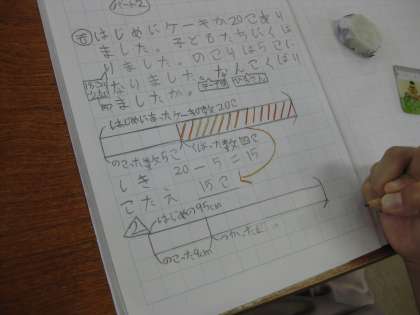 パート2
はじめにケーキが20こあり
ました。子どもたちにくば
りました。のこりは5こに
なりました。なんこくばり
ましたか。
はじめにあったケーキの数20こ
のこった数5こ くばった数□こ
しき 20-5=15
こたえ 15こ
2 はじめ95cm
のこった9cm つかった